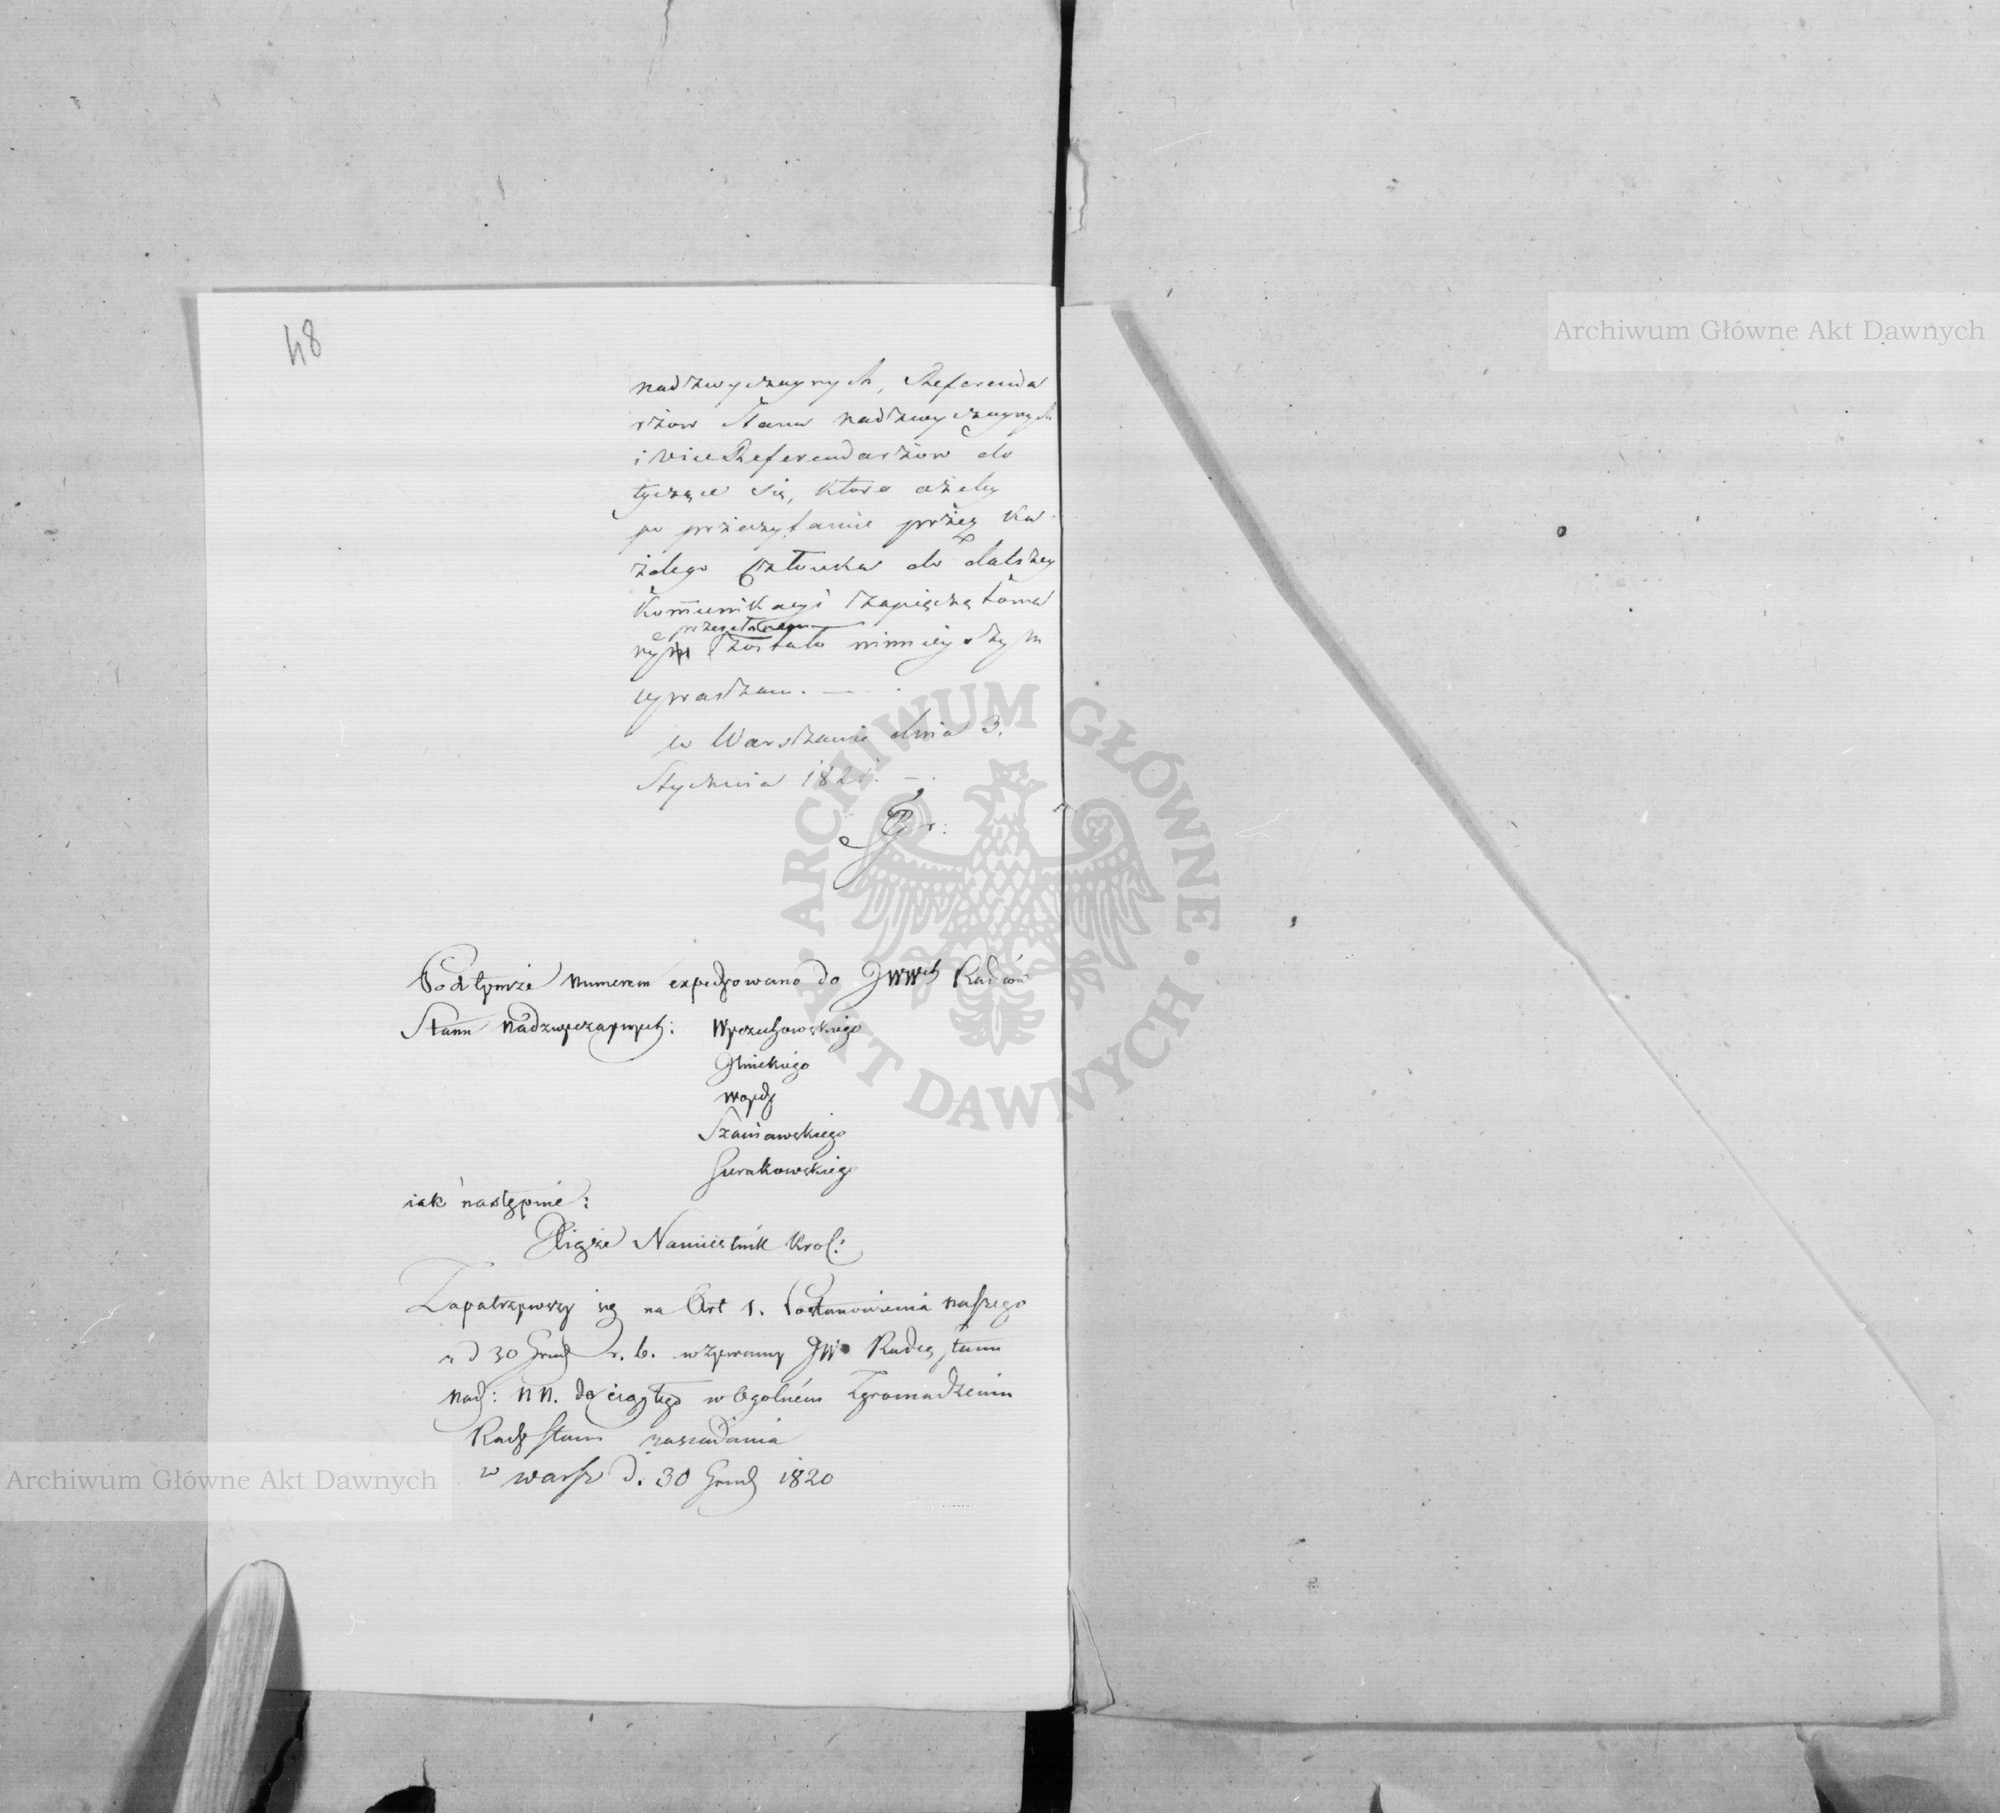 48
nadzwyczaynych, Referenda
rzów Stanu nadzwyczaynych
i Vice Referendarzów do
tyczące się, które ażeby
po przeczytaniu przez Ka
żdego Członka do dalszey
Kommunikacyi zapieczętowa
przesłane
ne zostało ninieyszym
upraszam. —
w Warszawie dnia 3.
Stycznia 1821. —
Pod tymże numerem expedyowano do JWWch Radców
Stanu nadzwyczaynych: Wyczechowskiego
Glinickiego
Woydy
Szaniawskiego
Surakowskiego
iak następnie:
Xiąże Namiestnik Krol:
Zapatrzywszy się na Art 1. Postanowienia naszego
z d 30 Grud r. b. wzywamy JW Radcę Stanu
nadz: NN. do ciągłego w Ogolném Zgromadzeniu
Rady Stanu zasiadania
w Warsz d. 30 Grud 1820
Archiwum Główne Akt Dawnych
Archiwum Główne Akt Dawnych
ARCHIWUM GŁÓWNE AKT DAWNYCH